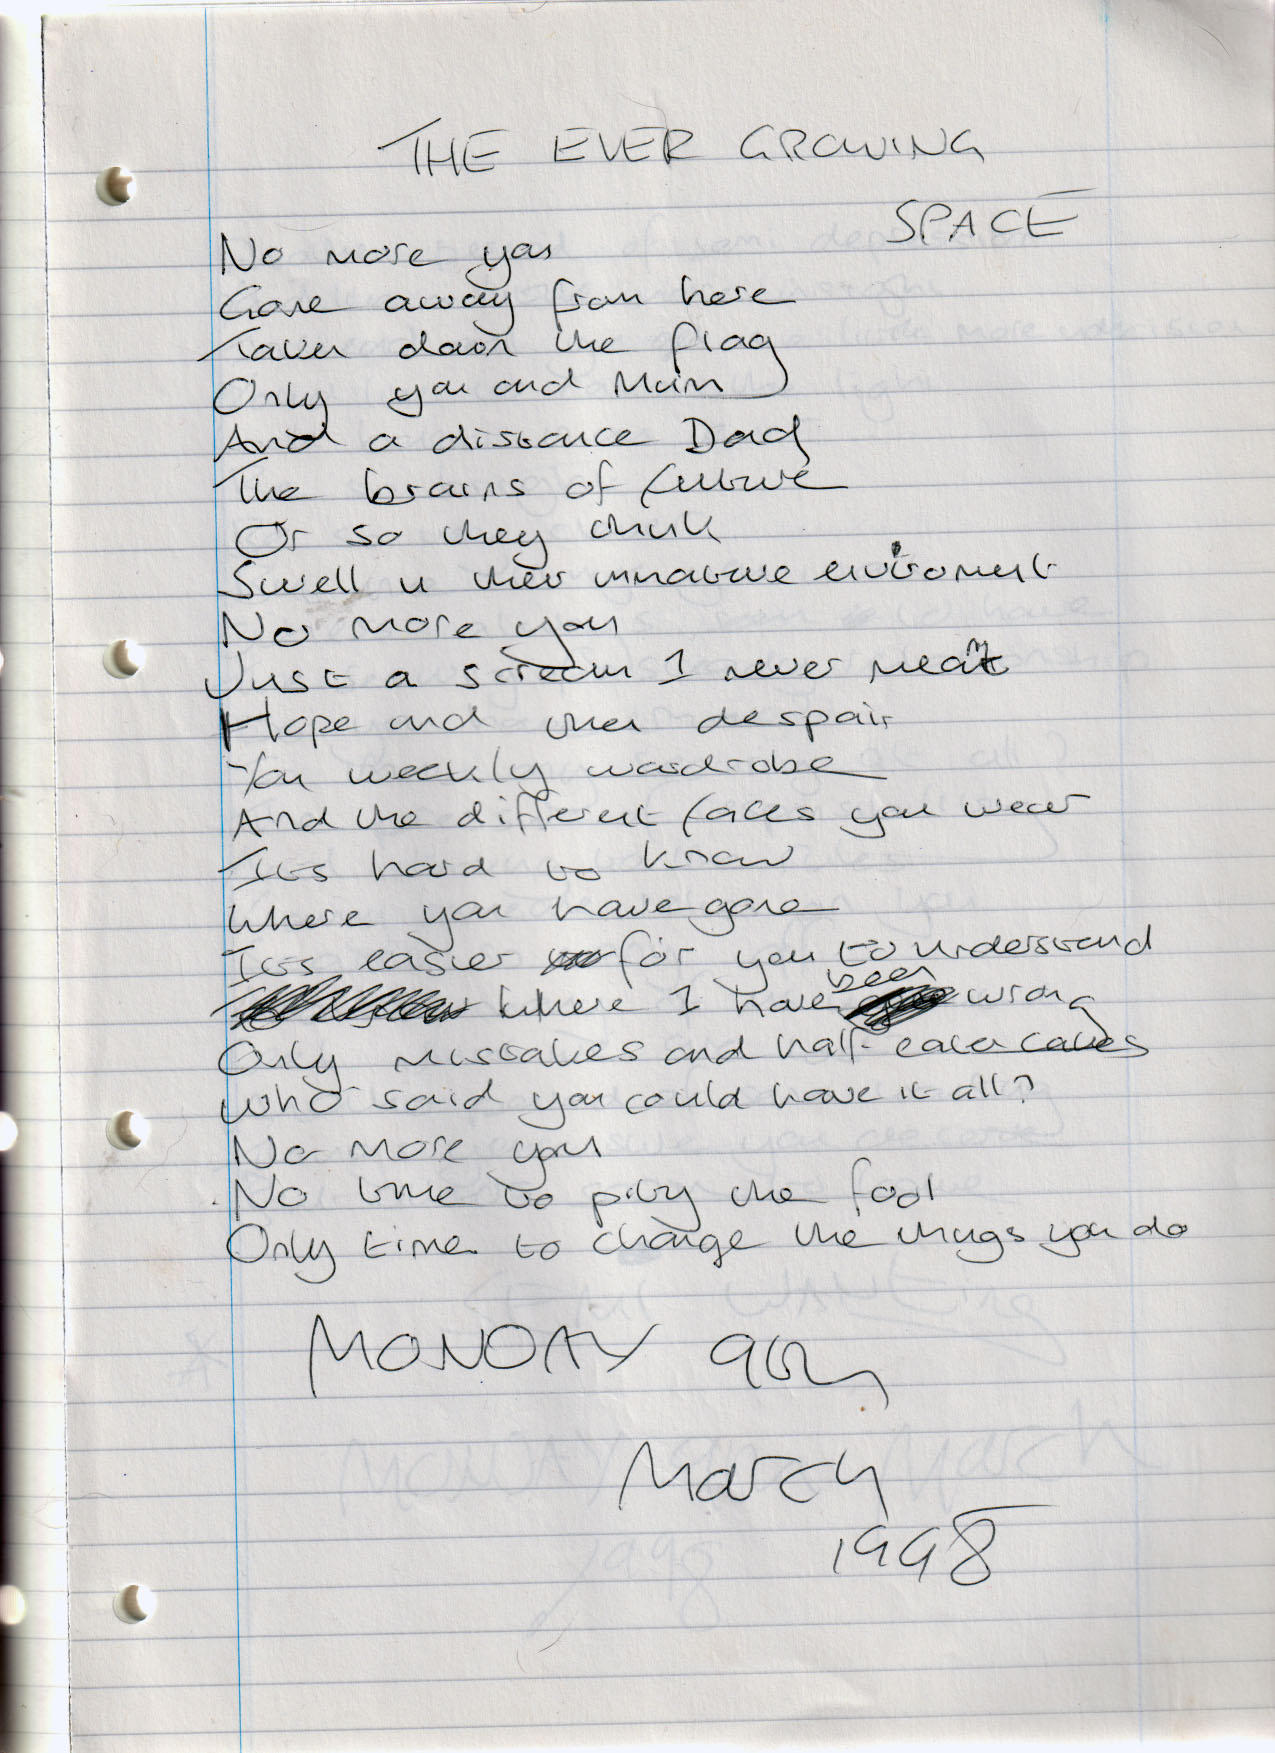 THE EVER GROWING
SPACE
No more you
Gone away from here
Taken down the flag
Only you and Mum
And a distance Dad
The brains of culture
Or so they think
Swell in their immature enviroment
No more you
Just a scream I never meant
Hope and then despair
You weekly wardrobe
And the different faces you wear
Its hard to know
Where you have gone
Its easier for you to understand
Where I have been wrong
Only mistakes and half-eaten cakes
Who said you could have it all?
No more you
No time to pity the fool
Only time to change the things you do
MONDAY 9th
March
1998